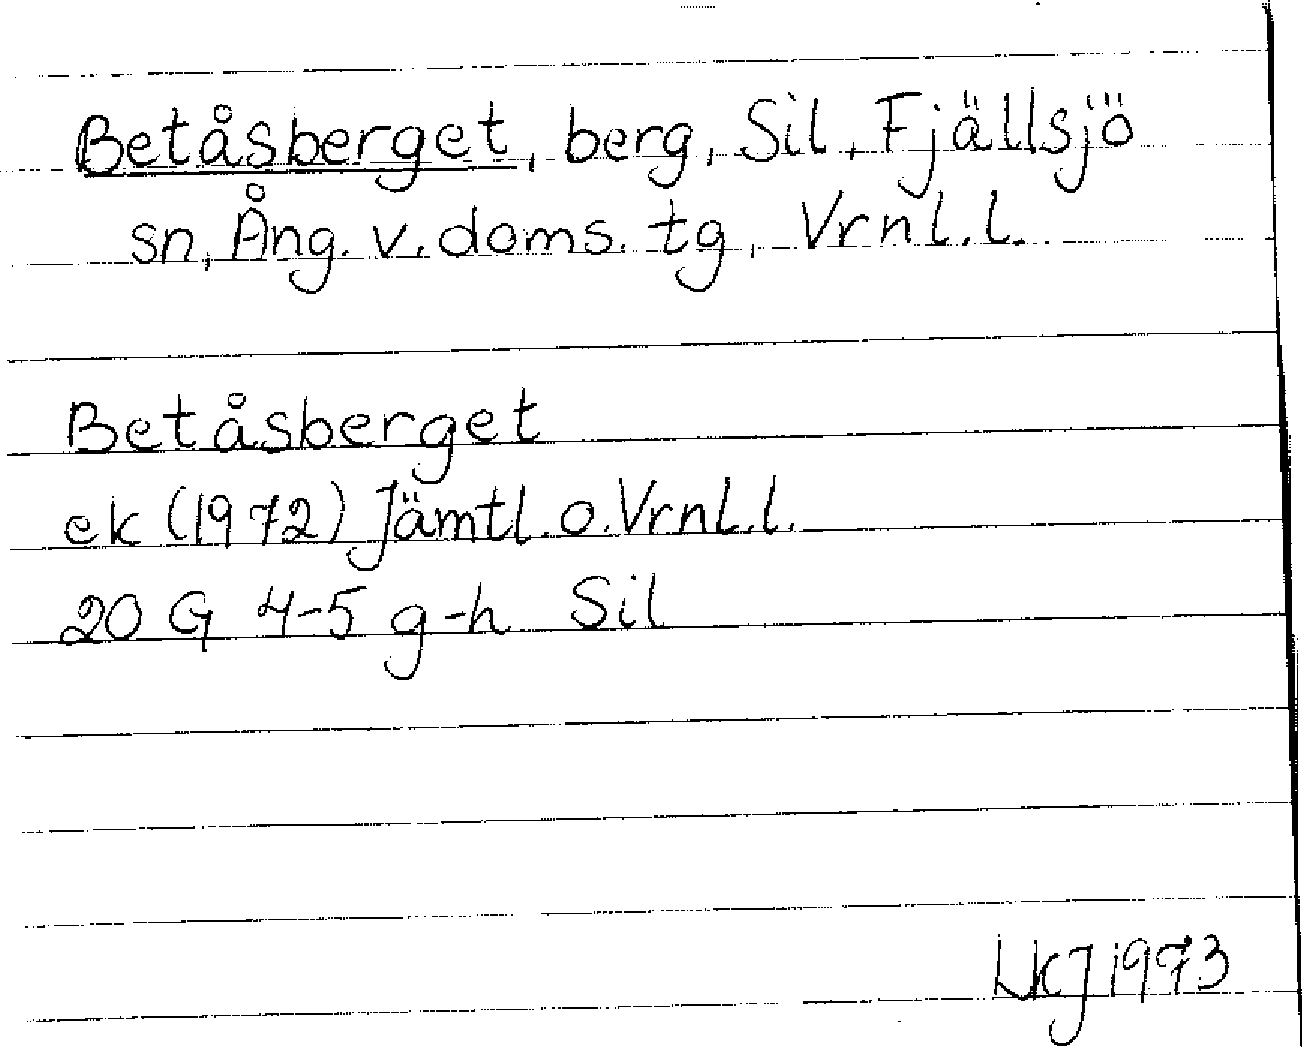 Betåsberget, berg, Sil, Fjällsjö
sn, Ång. v. doms. tg, Vrnl. l.
Betåsberget
ek (1972) Jämtl. o. Vrnl. l.
20 G 4-5 g-h Sil
LKJ 1973